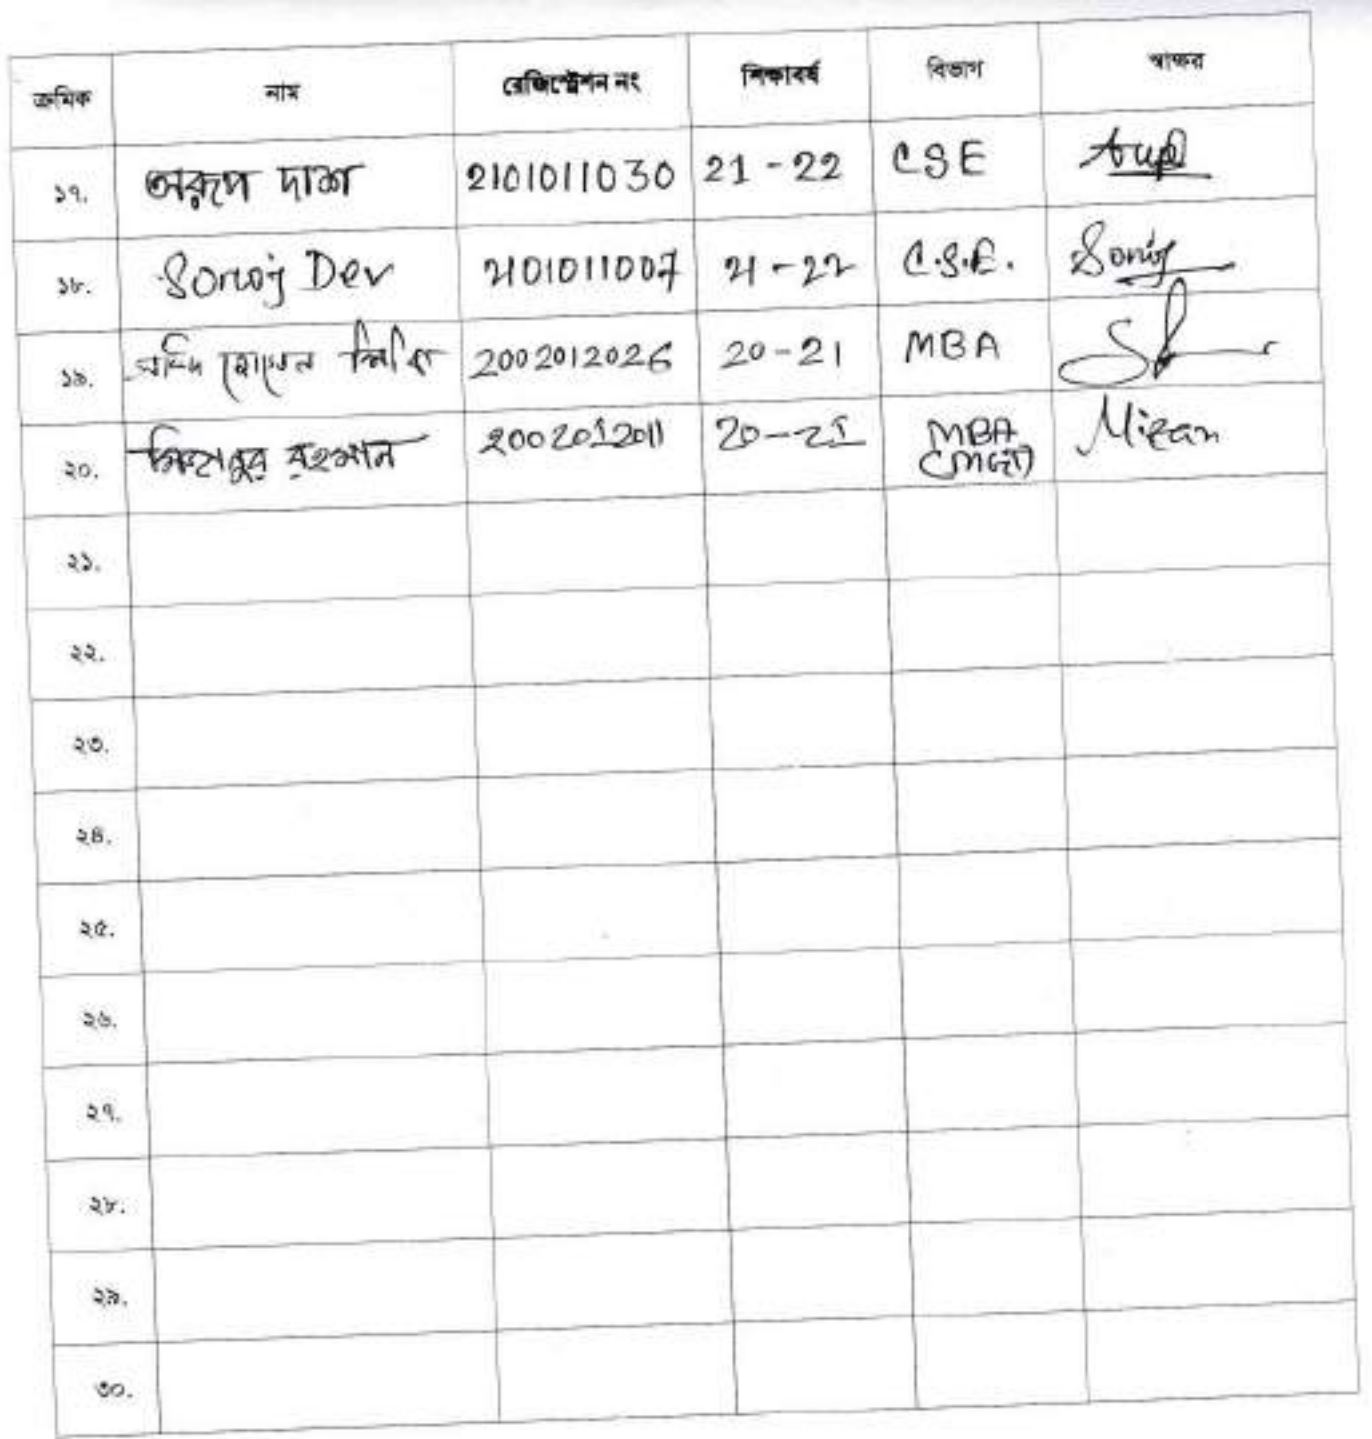 ক্রমিক নাম রেজিস্ট্রেশন নং শিক্ষাবর্ষ বিভাগ স্বাক্ষর
১৭. অরূপ দাশ 2101011030 21-22 CSE
১৮. Soroj Dev 2101011007 21-22 C.S.E. Soroj
১৯. হোসেন 2002012026 20-21 MBA
২০. মিজানুর রহমান 2002012011 20-21 MBA Mizan
(MGT)
২১.
২২.
২৩.
২৪.
২৫.
২৬.
২৭.
২৮.
২৯.
৩০.